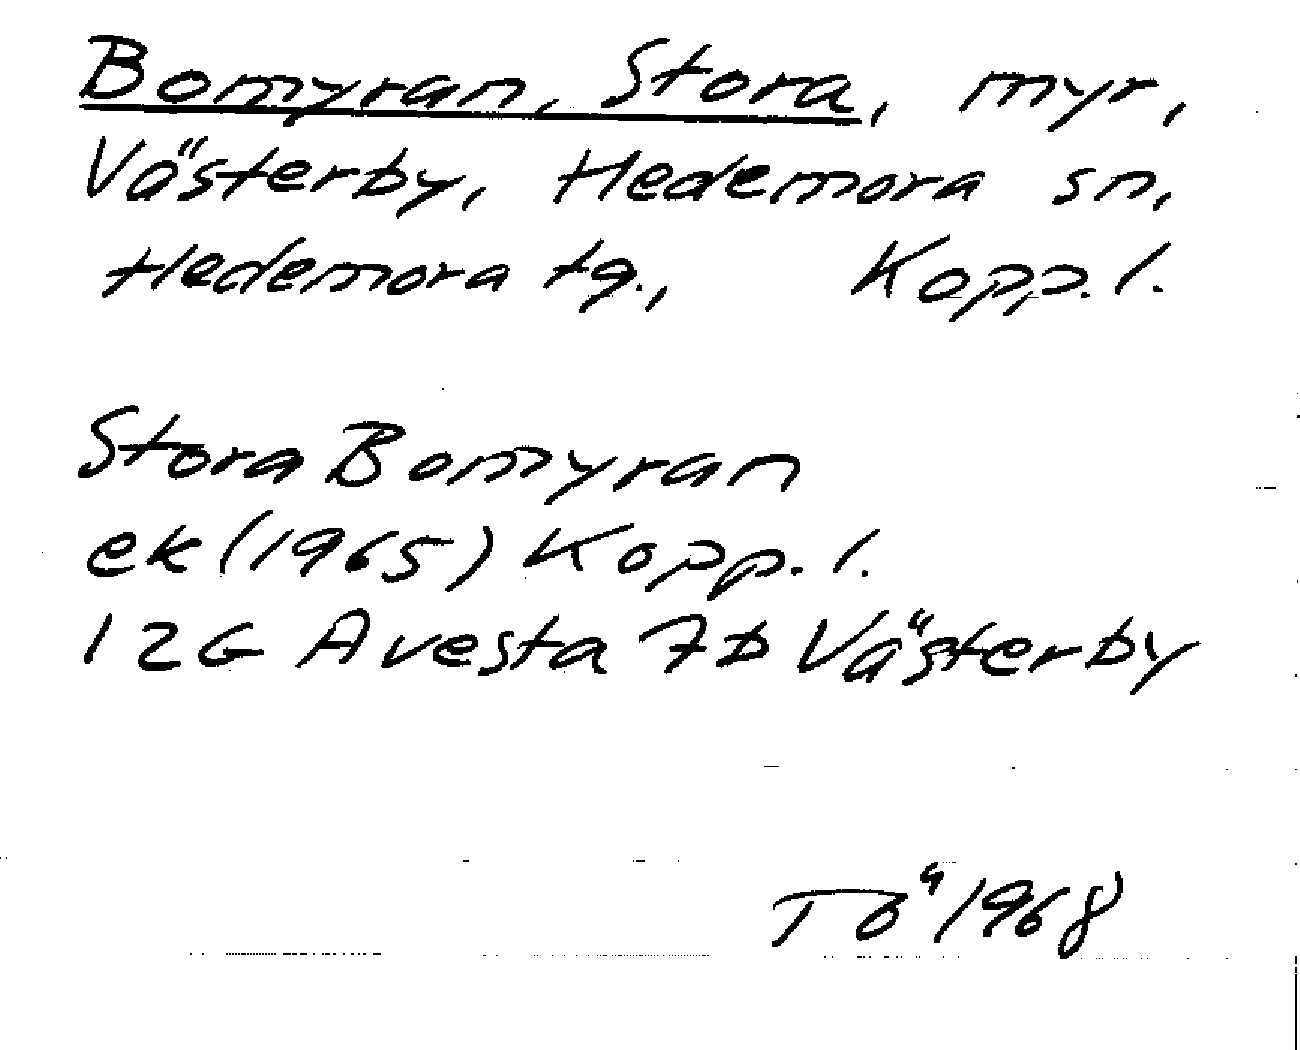 Bomyran, Stora, myr,
Västerby, Hedemora sn,
Hedemora tg., Kopp.l.
Stora Bomyran
ek (1965) Kopp.l.
12G Avesta 7b Västerby
TÖ 1968